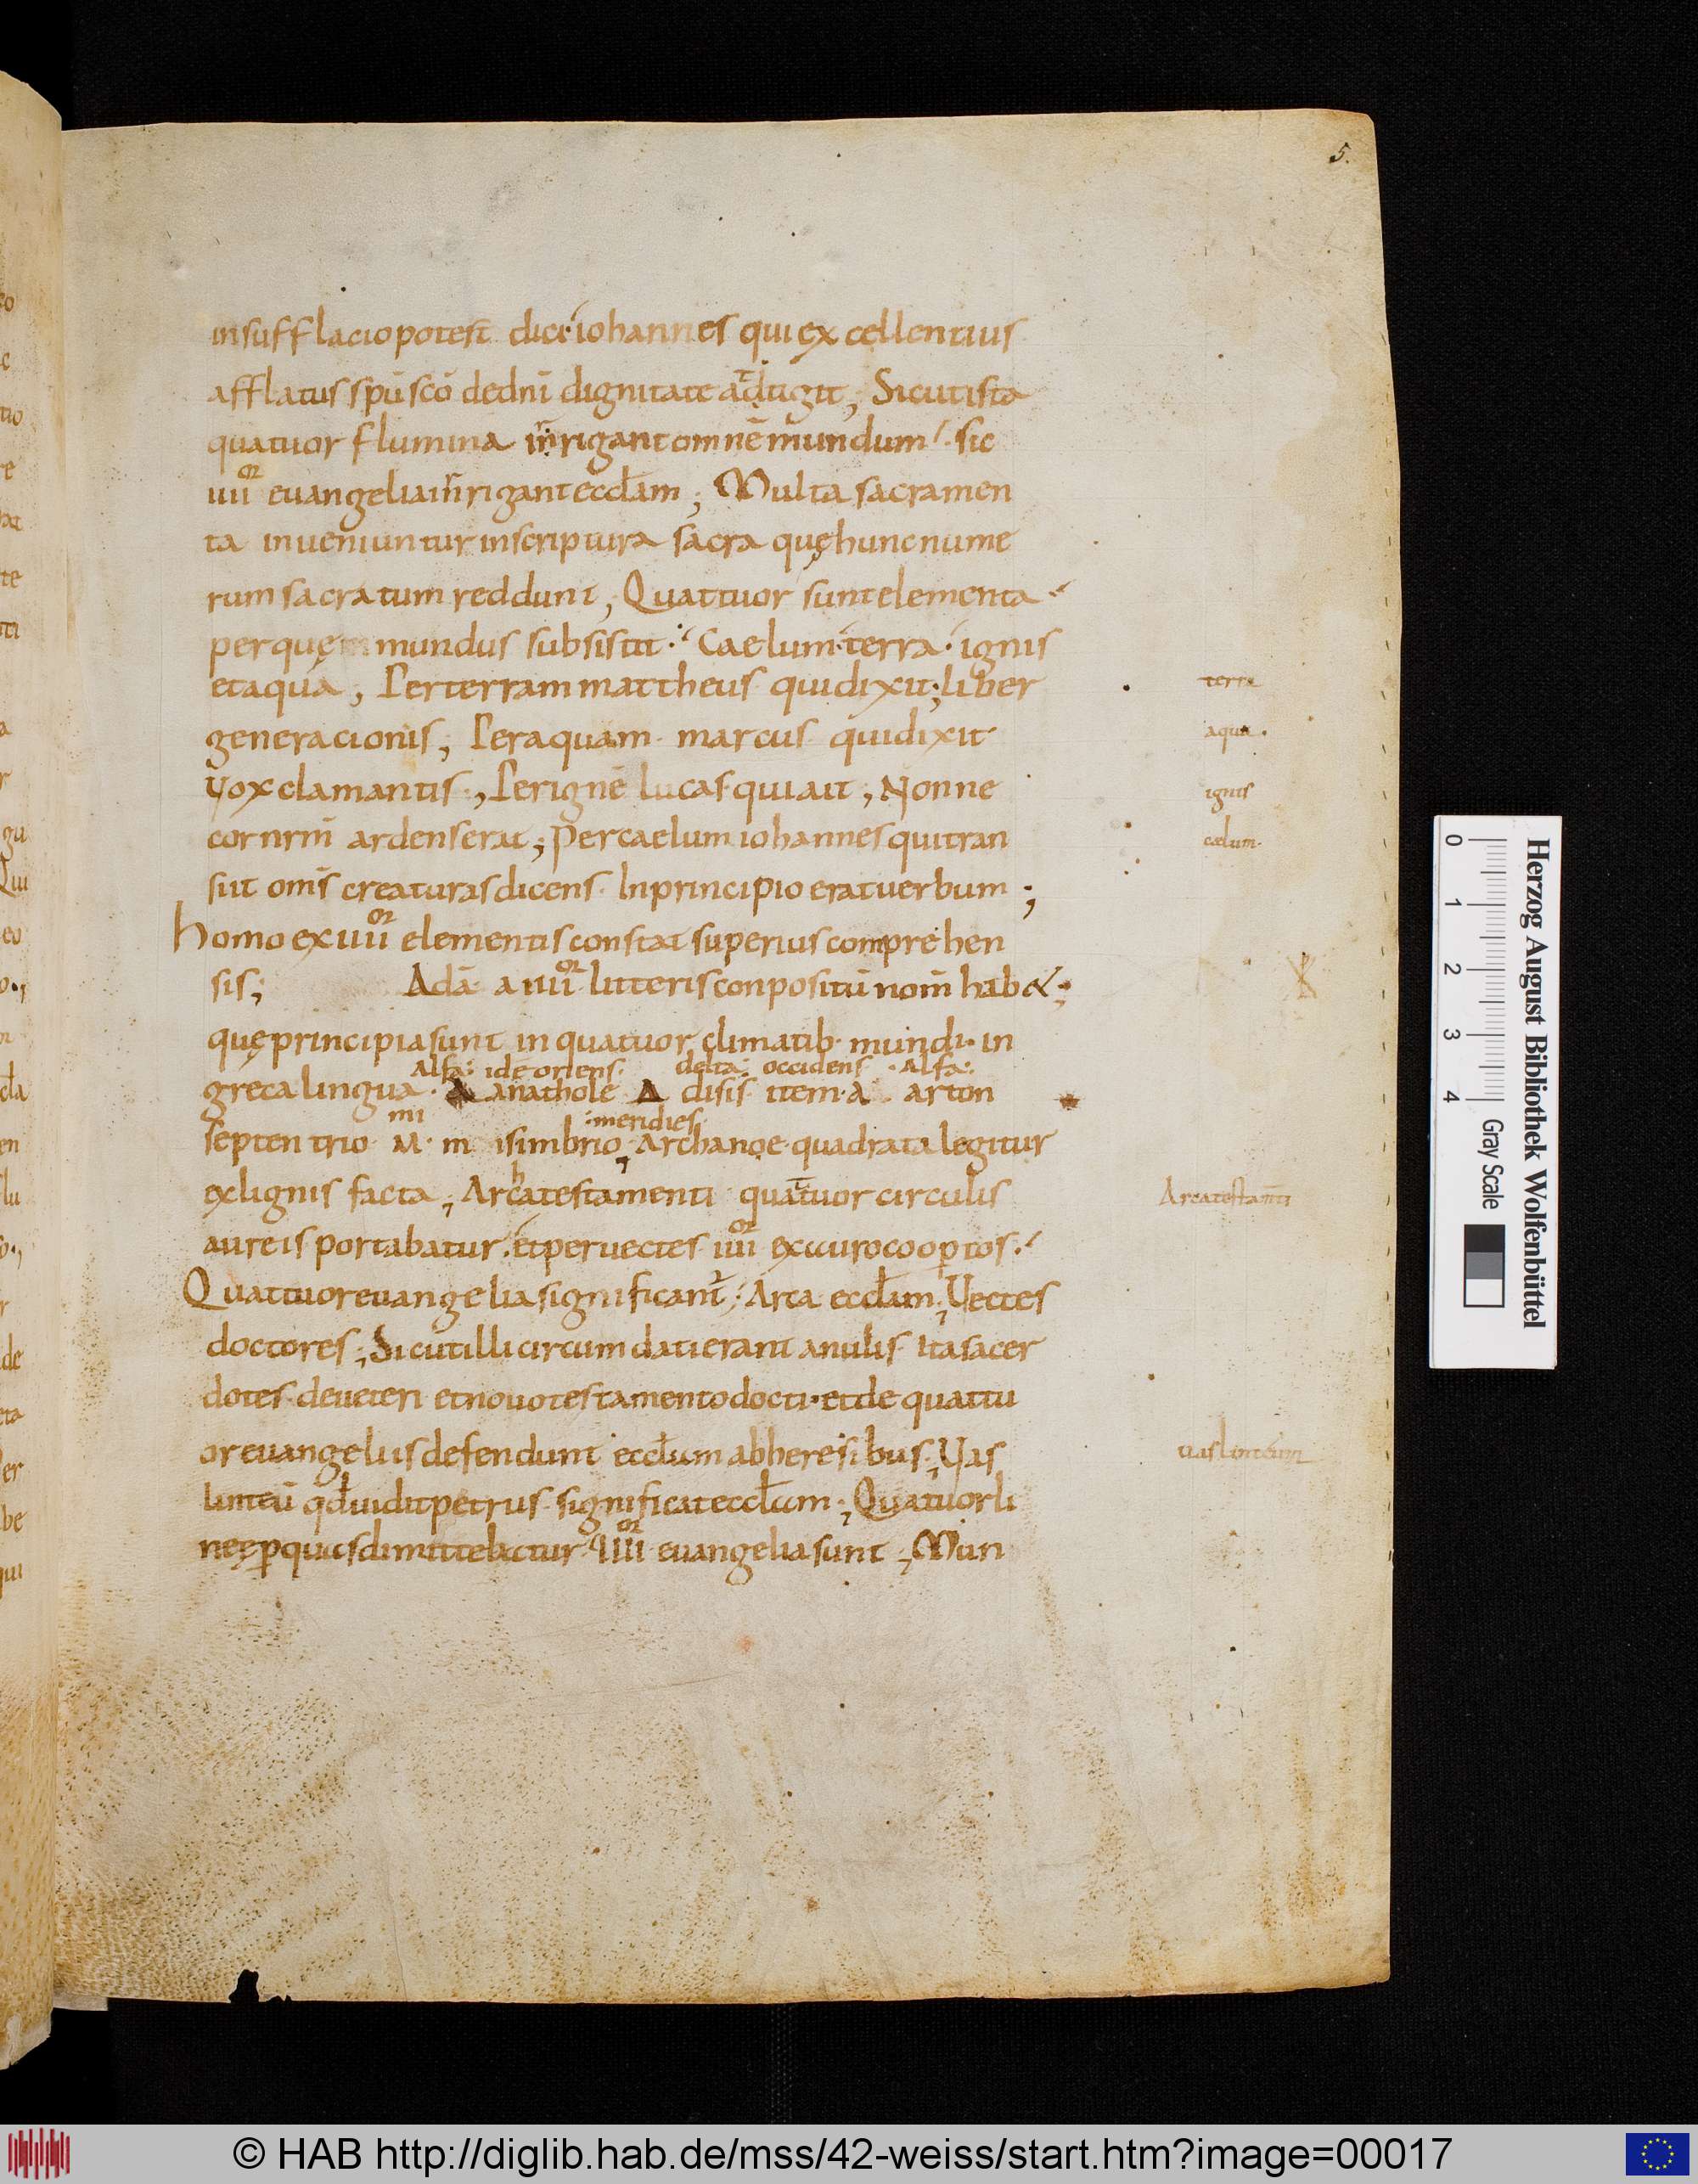 5.
insufflacio potest dici iohannes qui excellentius
afflatus spū scō de dnī dignitate adtigit; Sicut ista
quatuor flumina inrigant omnē mundum. sic
iiii or euangelia inrigant eccłam; Multa sacramen
ta inueniuntur in scriptura sacra quę hunc nume
rum sacratum reddunt; Quattuor sunt elementa.
per quę mundus subsistit. Caelum. terra. ignis
et aqua; Per terram mattheus qui dixit; liber
terra
generacionis; Per aquam marcus qui dixit
aqua.
Vox clamantis; Per ignē lucas qui ait; Nonne
ignis
cor nrm̄ ardens erat; Per caelum iohannes qui tran
cælum.
siit om̄s creaturas dicens. In principio erat uerbum;
Homo ex iiii or elementis constat superius comprehen
sis; Adā a iiii or litteris conpositū nom̄ hab&;
quę principia sunt in quatuor climatib. mundi. in
Alfa: id ē oriens. delta: occidens. Alfa:.
greca lingua. A anathole Δ disis item. A arton
mi meridies
septentrio M. m isimbrio, Archa noe quadrata legitur
ex lignis facta; Archa testamenti quattuor circulis
Arca testam̄ti
aureis portabatur. et per uectes iiii or ex auro coop̱tos.
Quattuor euangelia significant; Arca eccłam; Vectes
doctores; Sicut illi circumdati erant anulis ita sacer
dotes de ueteri et nouo testamento docti. et de quattu
or euangeliis defendunt eccłiam ab heresibus; Vas
uas linteum
linteū qđ uidit petrus significat eccłam; Quatuor li
neę p̱ quas dimittebatur. IIII or euangelia sunt; Mun
Herzog August Bibliothek Wolfenbüttel
0 1 2 3 4 Gray Scale
© HAB http://diglib.hab.de/mss/42-weiss/start.htm?image=00017